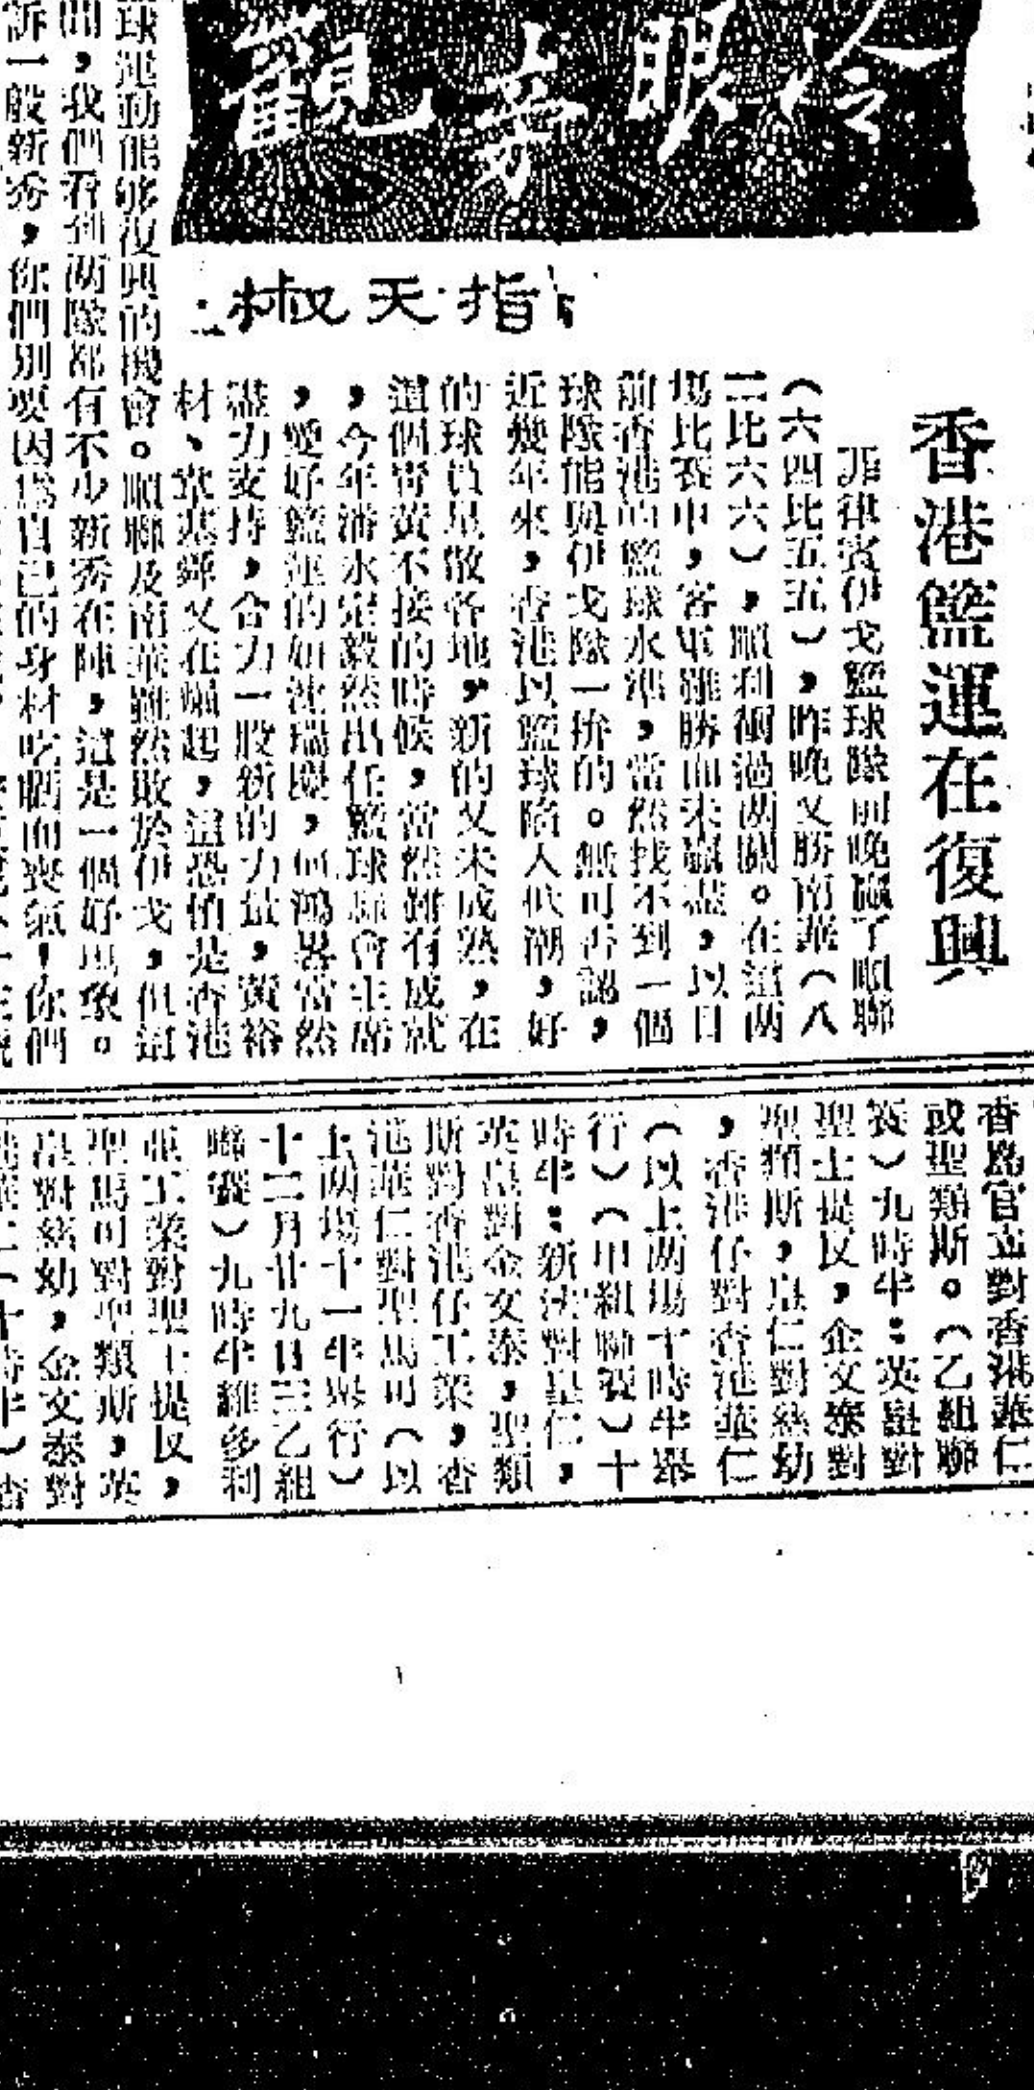 冷眼旁觀
指天椒
香港籃運在復興
菲律賓伊戈籃球隊前晚贏了順聯
（六四比五五），昨晚又勝南華（八
二比六六），順利衝過兩關。在這兩
塲比賽中，客軍雖勝而未贏盡，以目
前香港的籃球水準，當然找不到一個
球隊能與伊戈隊一拚的。無可否認，
近幾年來，香港以籃球陷入低潮，好
的球員星散各地，新的又未成熟，在
這個靑黃不接的時候，當然難有成就
，今年潘永定毅然出任籃球總會主席
，愛好籃運的如沈瑞慶，何鴻畧當然
盡力支持，合力一股新的力量，黃裕
材、章基舜又在崛起，這恐怕是香港
球運動能够復興的機會。順聯及南華雖然敗於伊戈，但這
間，我們看到兩隊都有不少新秀在陣，這是一個好現象。
訴一般新秀，你們別要因爲自己的身材吃虧而喪氣，你們
香島官立對香港華仁
或聖類斯。（乙組聯
賽）九時半：英皇對
聖士提反，金文泰對
聖類斯，皇仁對慈幼
，香港仔對香港華仁
（以上兩塲十時半舉
行）（甲組聯賽）十
時半：新法對皇仁，
英皇對金文泰，聖類
斯對香港仔工業，香
港華仁對聖馬可（以
上兩塲十一半舉行）
十二月廿九日三乙組
聯賽）九時半維多利
亞工業對聖士提反，
聖馬可對聖類斯，英
皇對慈幼，金文泰對